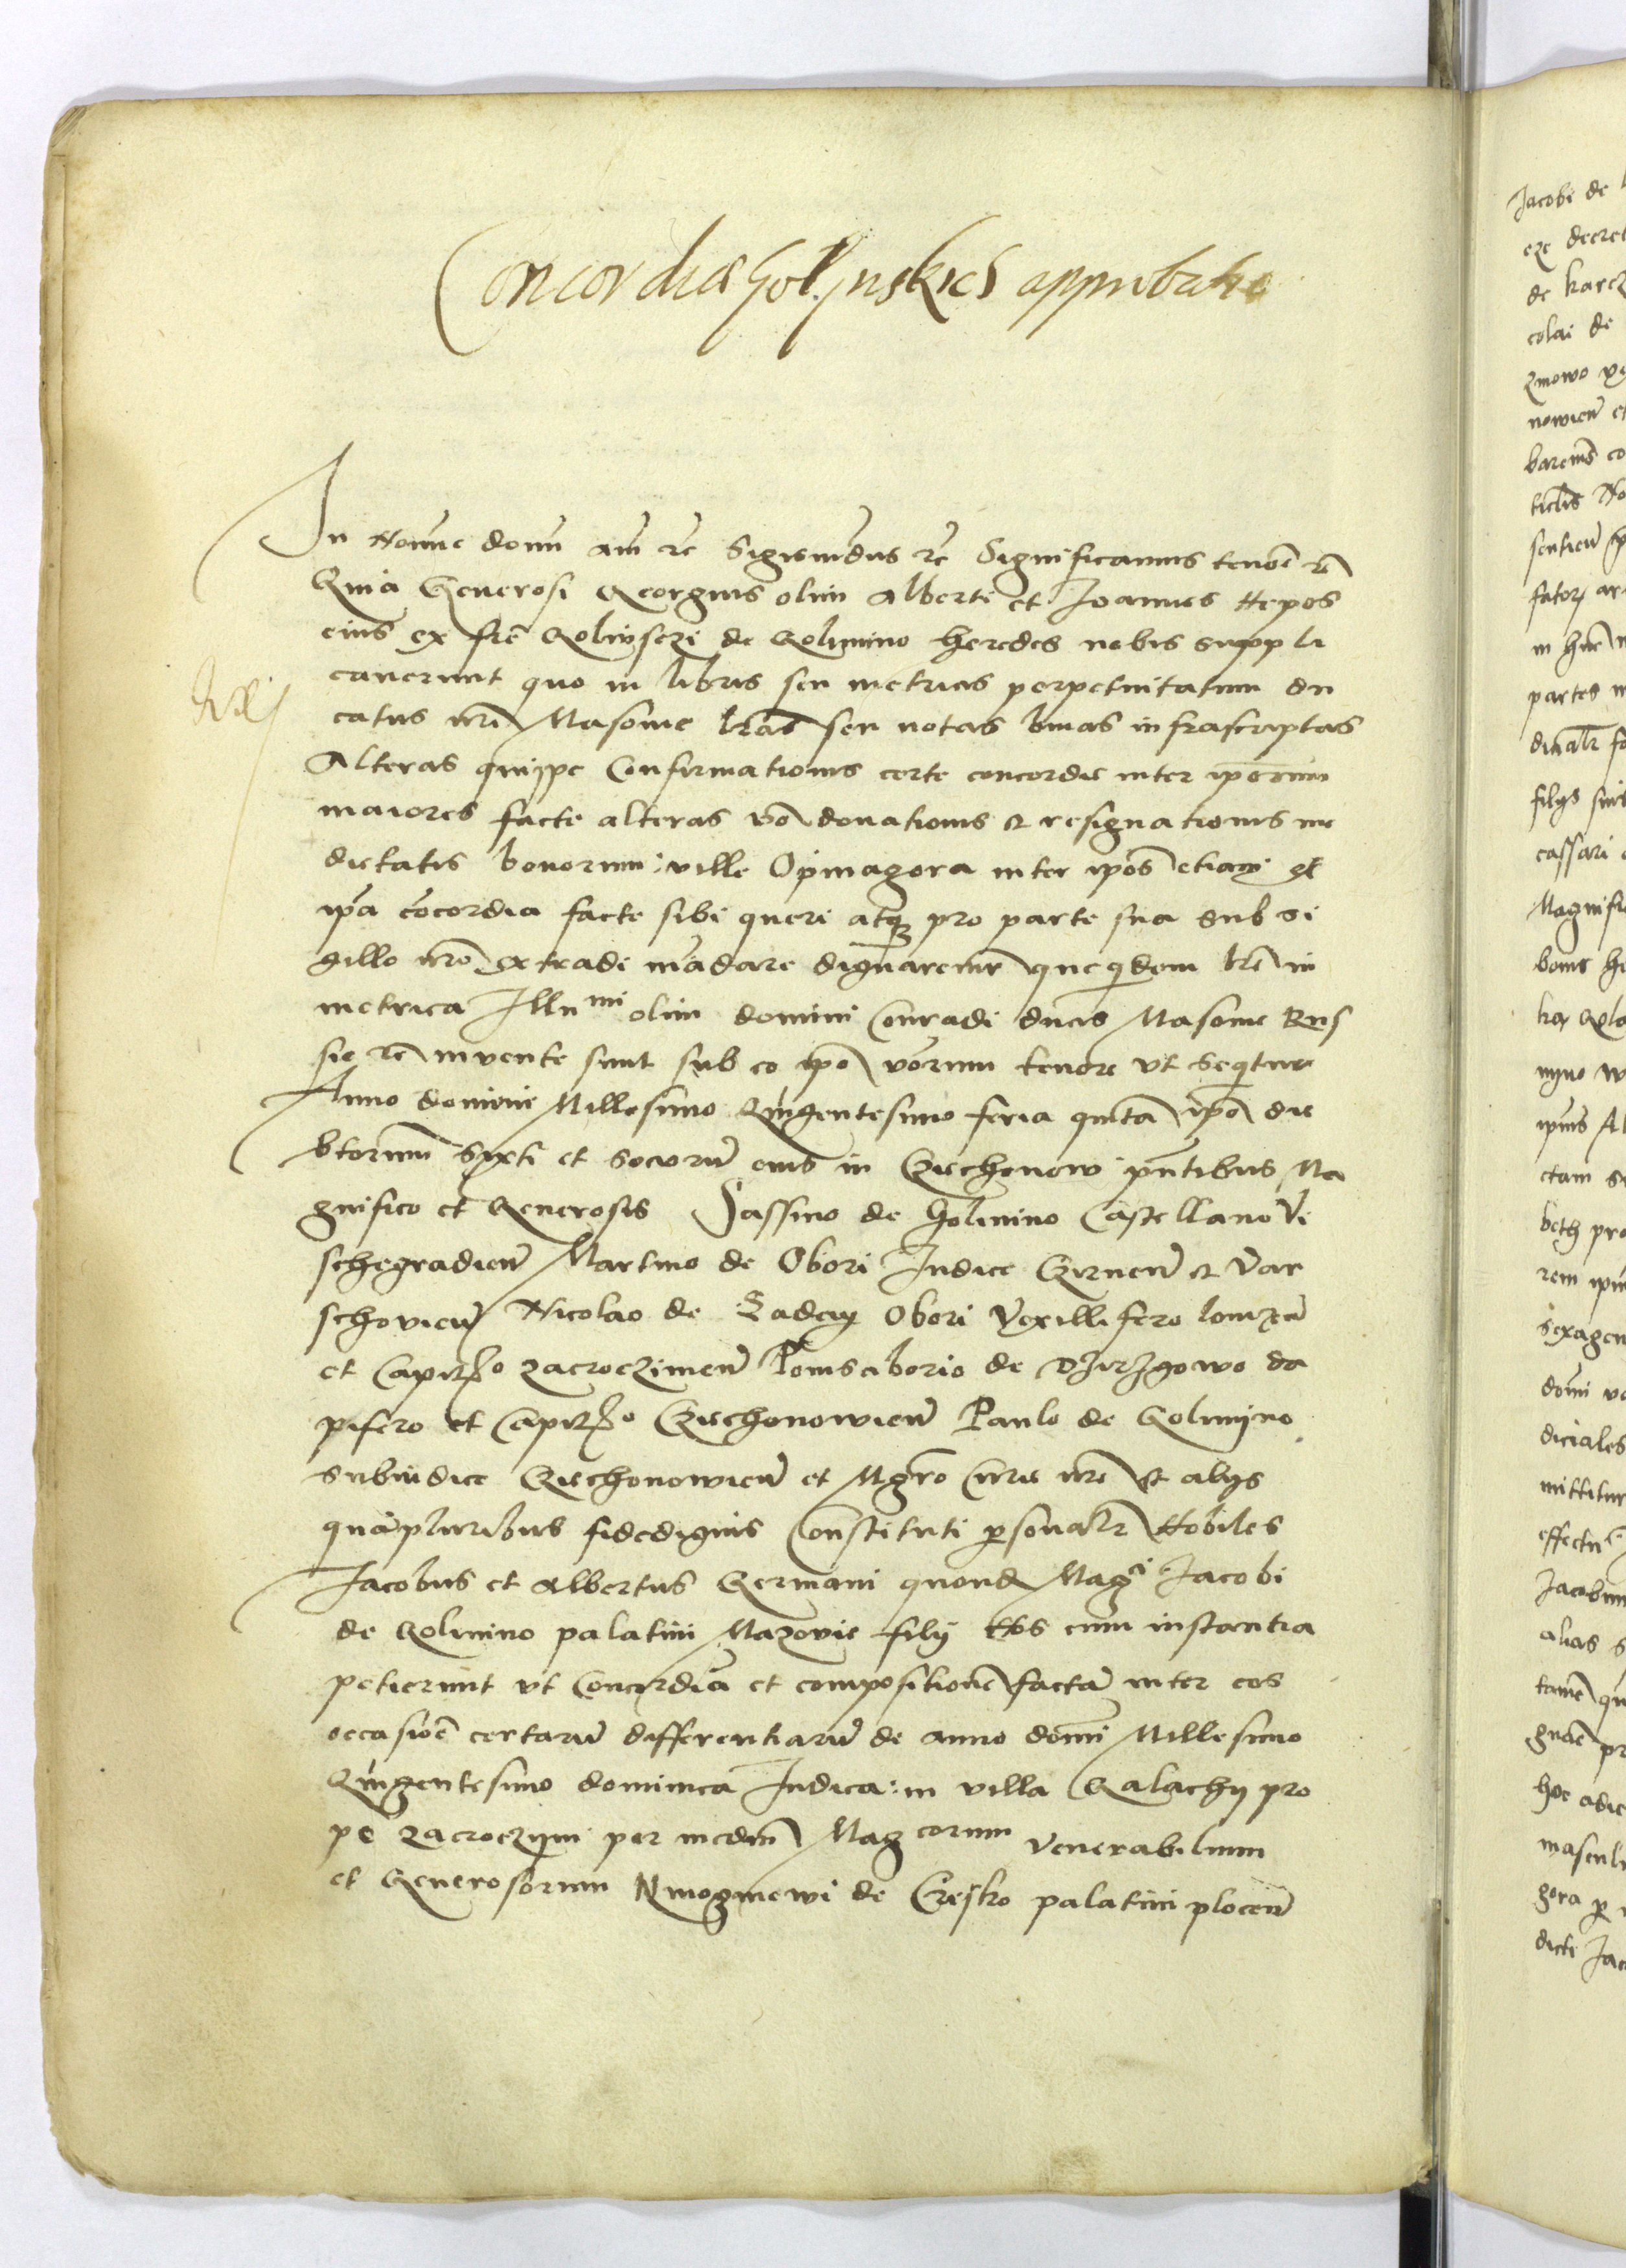 Concordia Golynskich approbatio
In Nomine domini am̄ rē Sigismūdus rē Significamus tenōre rē
Quia Generosi Georgius olim Alberti et Joannes Nepos
eius ex frē Golinsczi de Golimino heredes nobis suppli
caverunt quo in libris seu metricis perpetuitatum du
catus nrī Masovie lrās seu notas binas infrascriptas
Alteras quippe Confirmationis certe concordie inter ipsorum
maiores facte alteras vō donationis et resignationis me
dietatis bonorum ville Opinagora inter ipōs etiam et
ipā cōcordia facte sibi queri atque pro parte sua sub si
gillo nrō extradi mādare dignaremur que quidem lrē in
metrica Illumi olim domini Conradi ducis Masovie Rus
sie rē invente sunt sub eo ipō verorum tenore ut sequitur
Anno domini Millesimo Quingentesimo feria quinta ipō die
btorum Sixti et sociorū eius in Cziechonow pn̄tibus Ma
gnifico et Generosis Sassino de Golinino Castellano Vi
schegradien̄ Martino de Obori Judice Czirnen̄ et Var
schovien̄ Nicolao de Obori Vexillifero lomzen̄
et Capitā̄o zacroczimen̄ Pomsciborio de Dzirzgowo da
pifero et Capitā̄o Cziechonowien̄ Paulo de Golimyno
Subiudice Cziechonowien̄ et Mgrō Curie nrē et alijs
quāpluribus fidedignis Constituti personalr̄ Nobiles
Jacobus et Albertus Germani quond Magci Jacobi
de Golinino palatini Mazovie filij Nos cum instantia
petierunt ut Concordiā et compositionē factā inter eos
occasiōē certarū differentiarū de anno domi Millesimo
Quingentesimo dominica Judica in villa Galachy pro
pe zacroczym per medm̄ Magcorum venerabilium
et Generosorum Nmogmewi de palatini plocen̄
Jacobi de
de
colai de
nowien̄ et
fator ar
partes
filijs suis
cassari
Magnifi
bonis he
sexagen
diciales
mittitur
effectu
Jacobum
alias s
hoc adie
masculi
gora per
dicti Jac